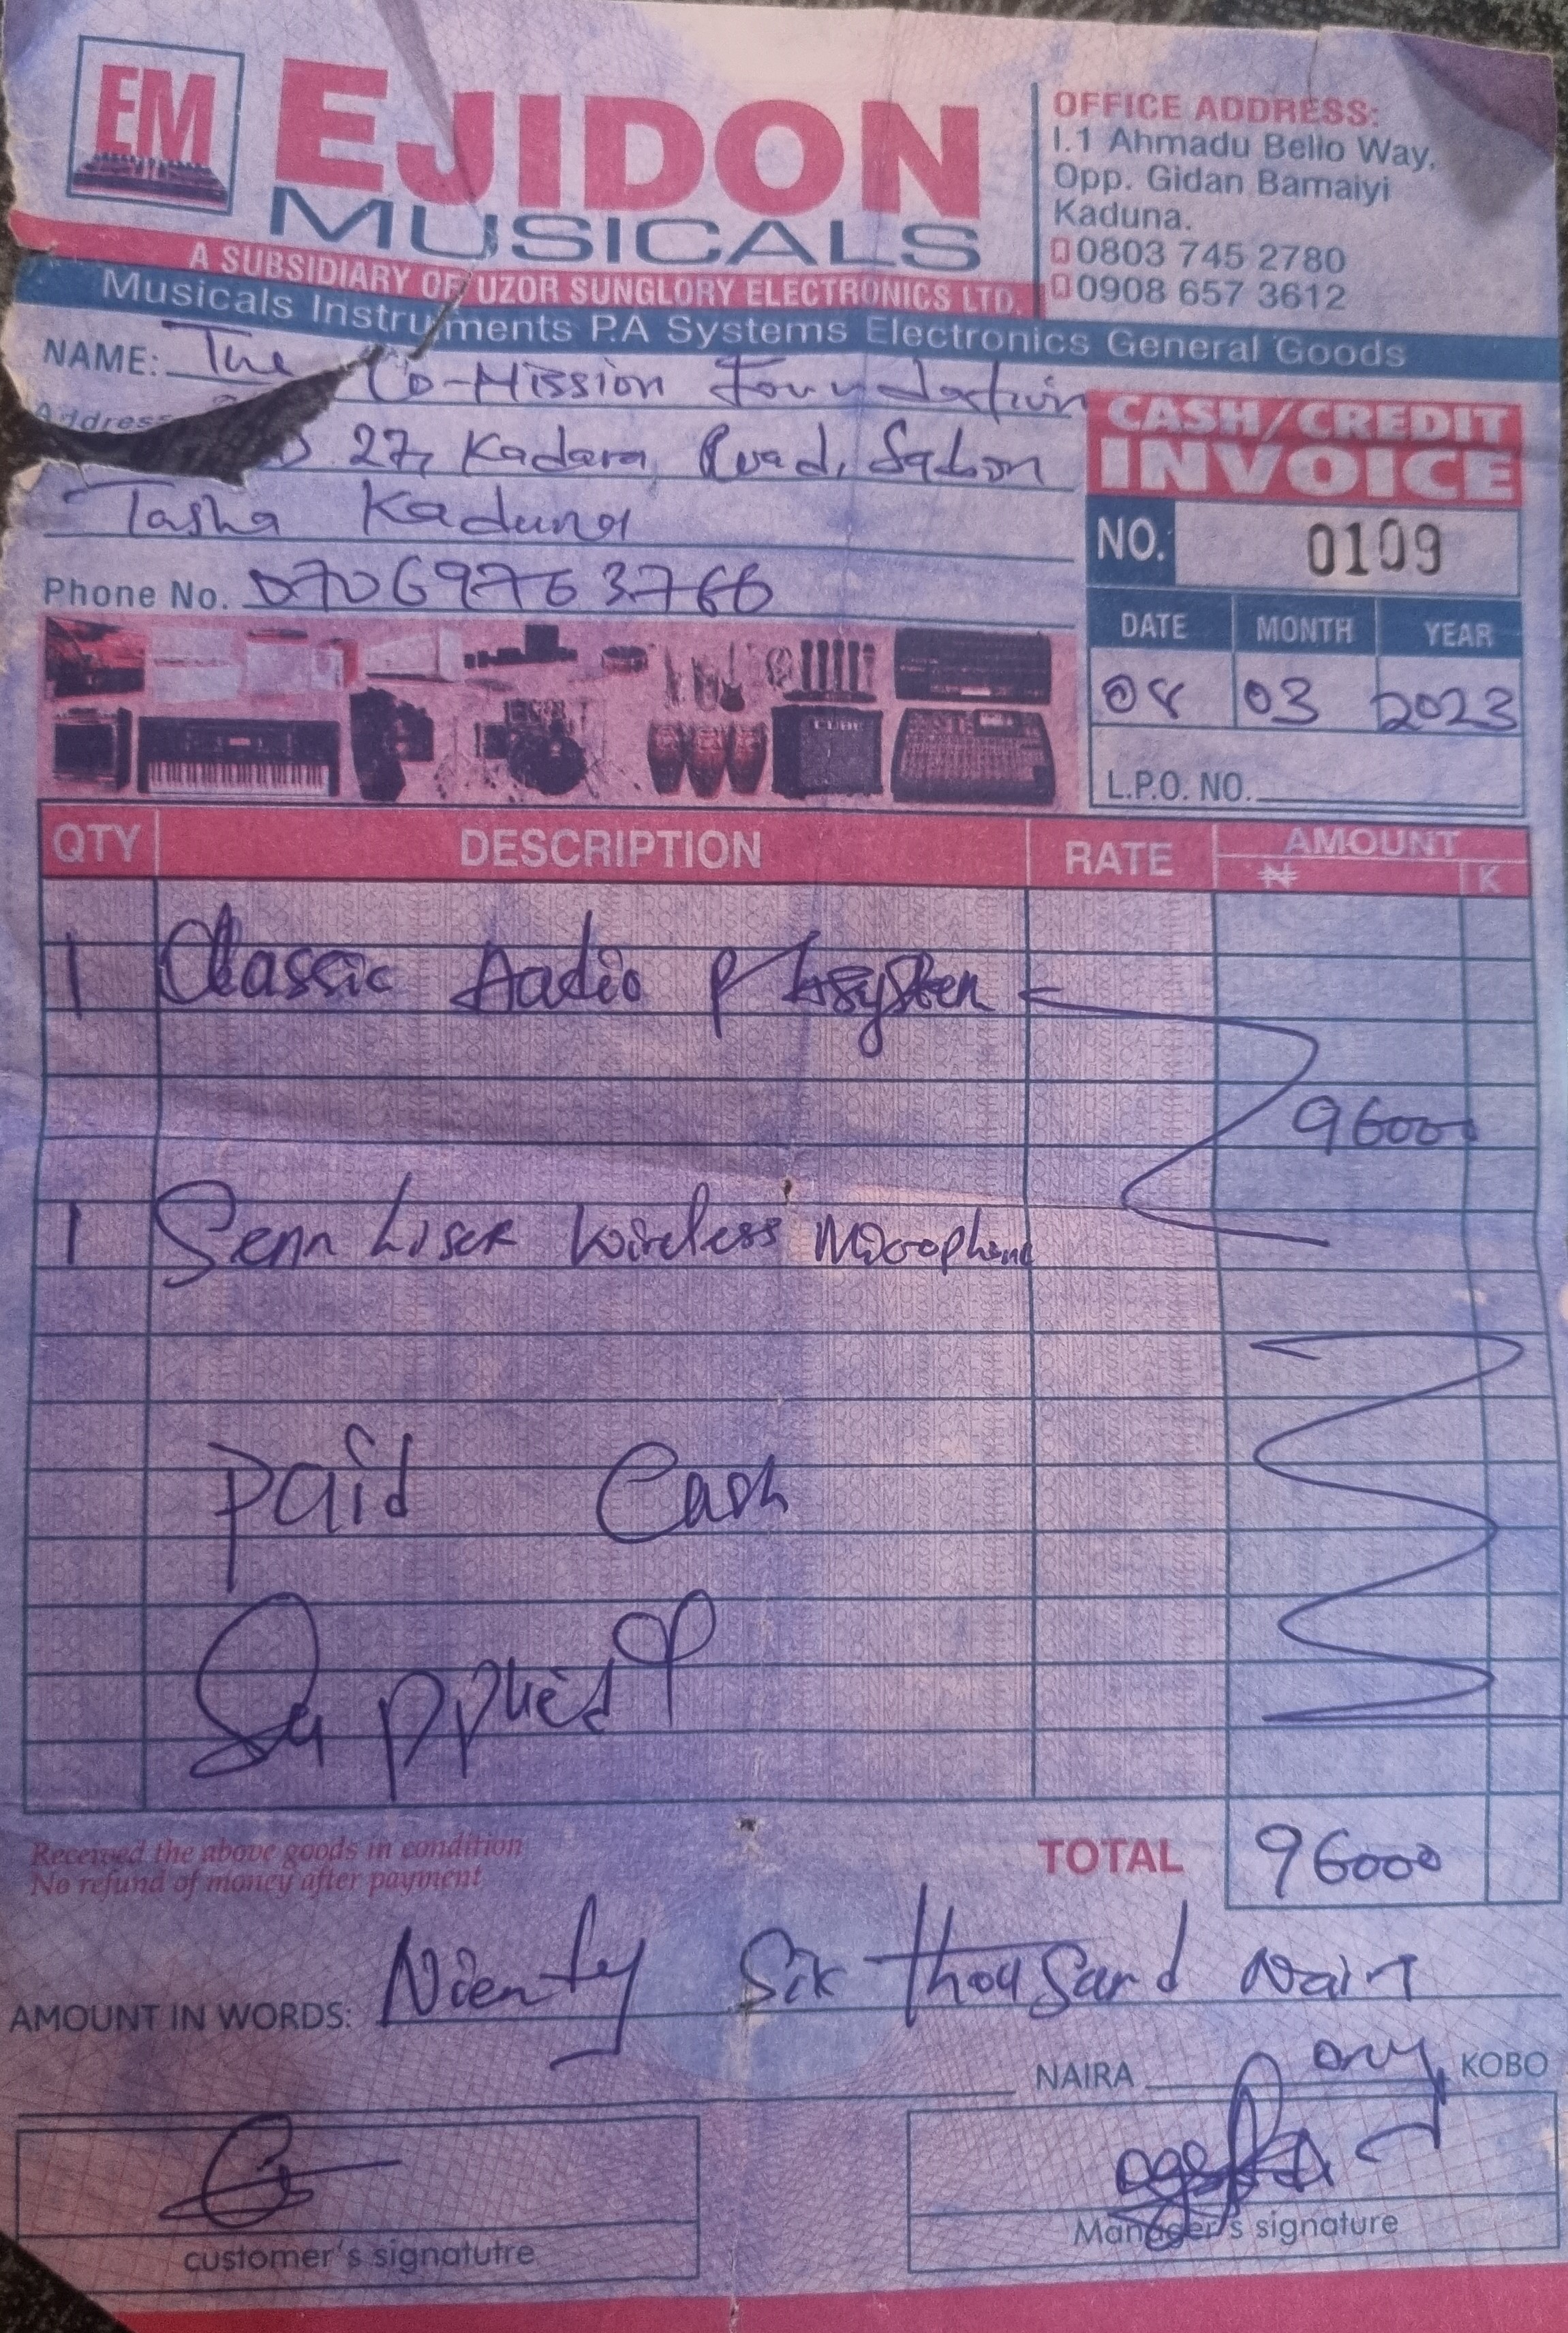 EM
EJIDON
MUSICALS
A SUBSIDIARY OF UZOR SUNGLORY ELECTRONICS LTD.
OFFICE ADDRESS:
I.1 Ahmadu Bello Way,
Opp. Gidan Bamaiyi
Kaduna.
0803 745 2780
0908 657 3612
Musicals Instruments P.A Systems Electronics General Goods
NAME: The Co-Mission Foundation
Address 27, Kadara Road, Sabon
Tasha Kaduna
Phone No. 07069763766
CASH/CREDIT
INVOICE
NO. 0109
DATE MONTH YEAR
08 03 2023
L.P.O. NO.
QTY DESCRIPTION RATE AMOUNT
₦ K
1 Classic Audio
96000
1 Senn Liser Wireless Microphone
Paid Cash
Supplied
Received the above goods in condition
No refund of money after payment
TOTAL 96000
AMOUNT IN WORDS: Nienty Six thousand Naira
NAIRA only KOBO
customer's signatutre
Manager's signature